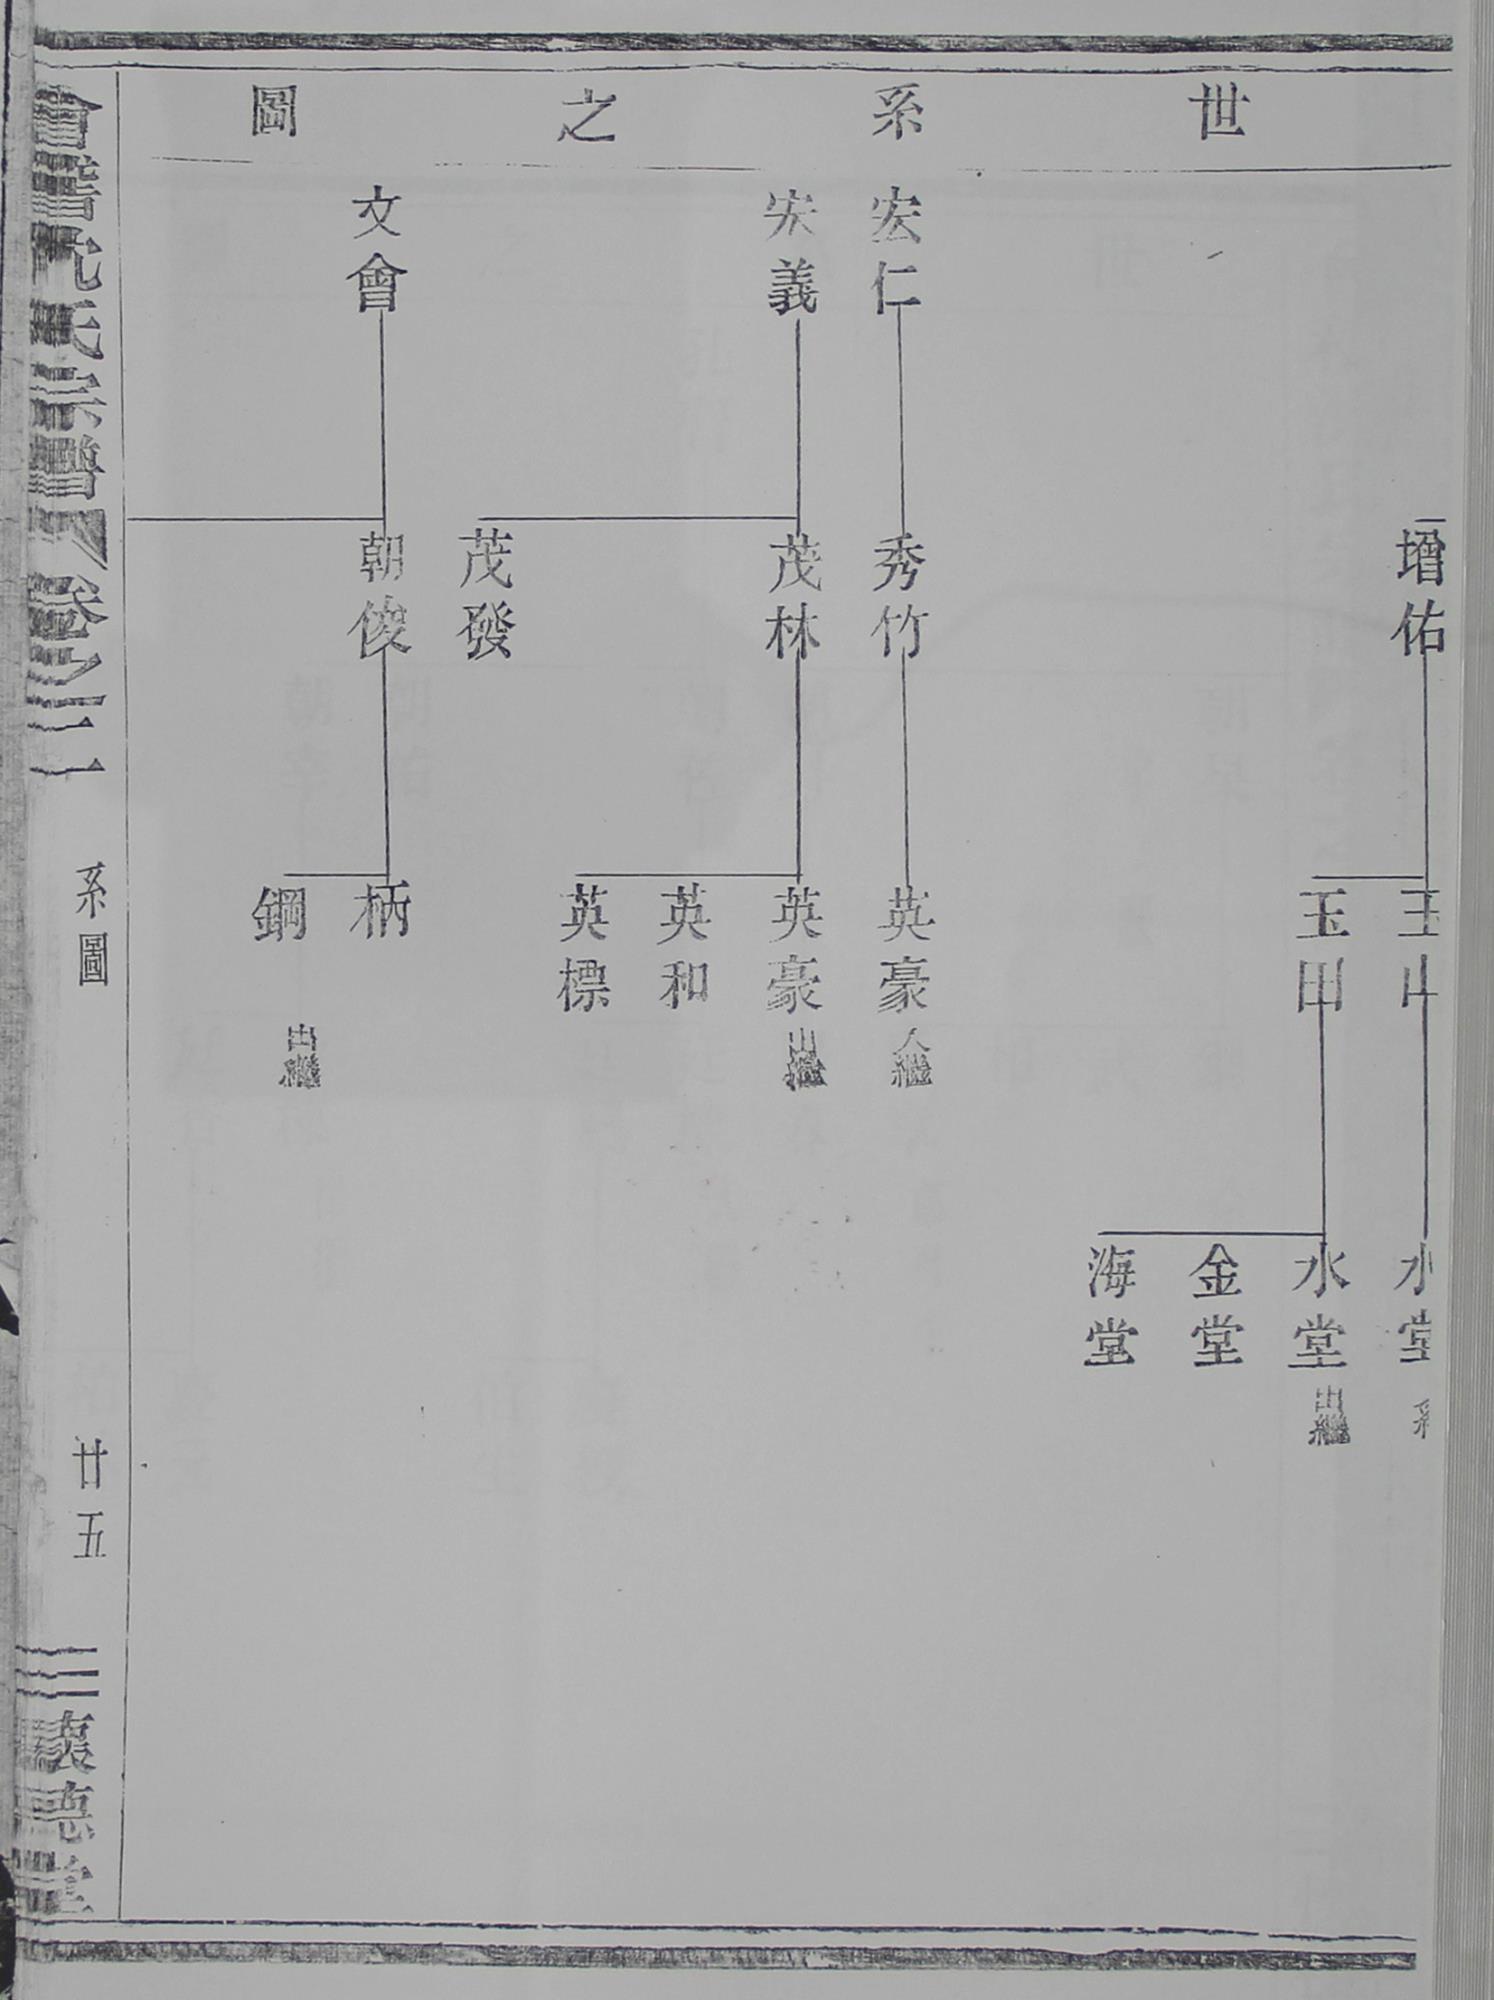 世系之圖
增佑
玉田
水堂
水堂
出繼
金堂
海堂
宏仁
秀竹
英豪
入繼
宏義
茂林
英豪
出繼
英和
英標
茂發
文會
朝俊
柄
鋼
出繼
會稽沈氏宗譜
卷之三
系圖
廿五